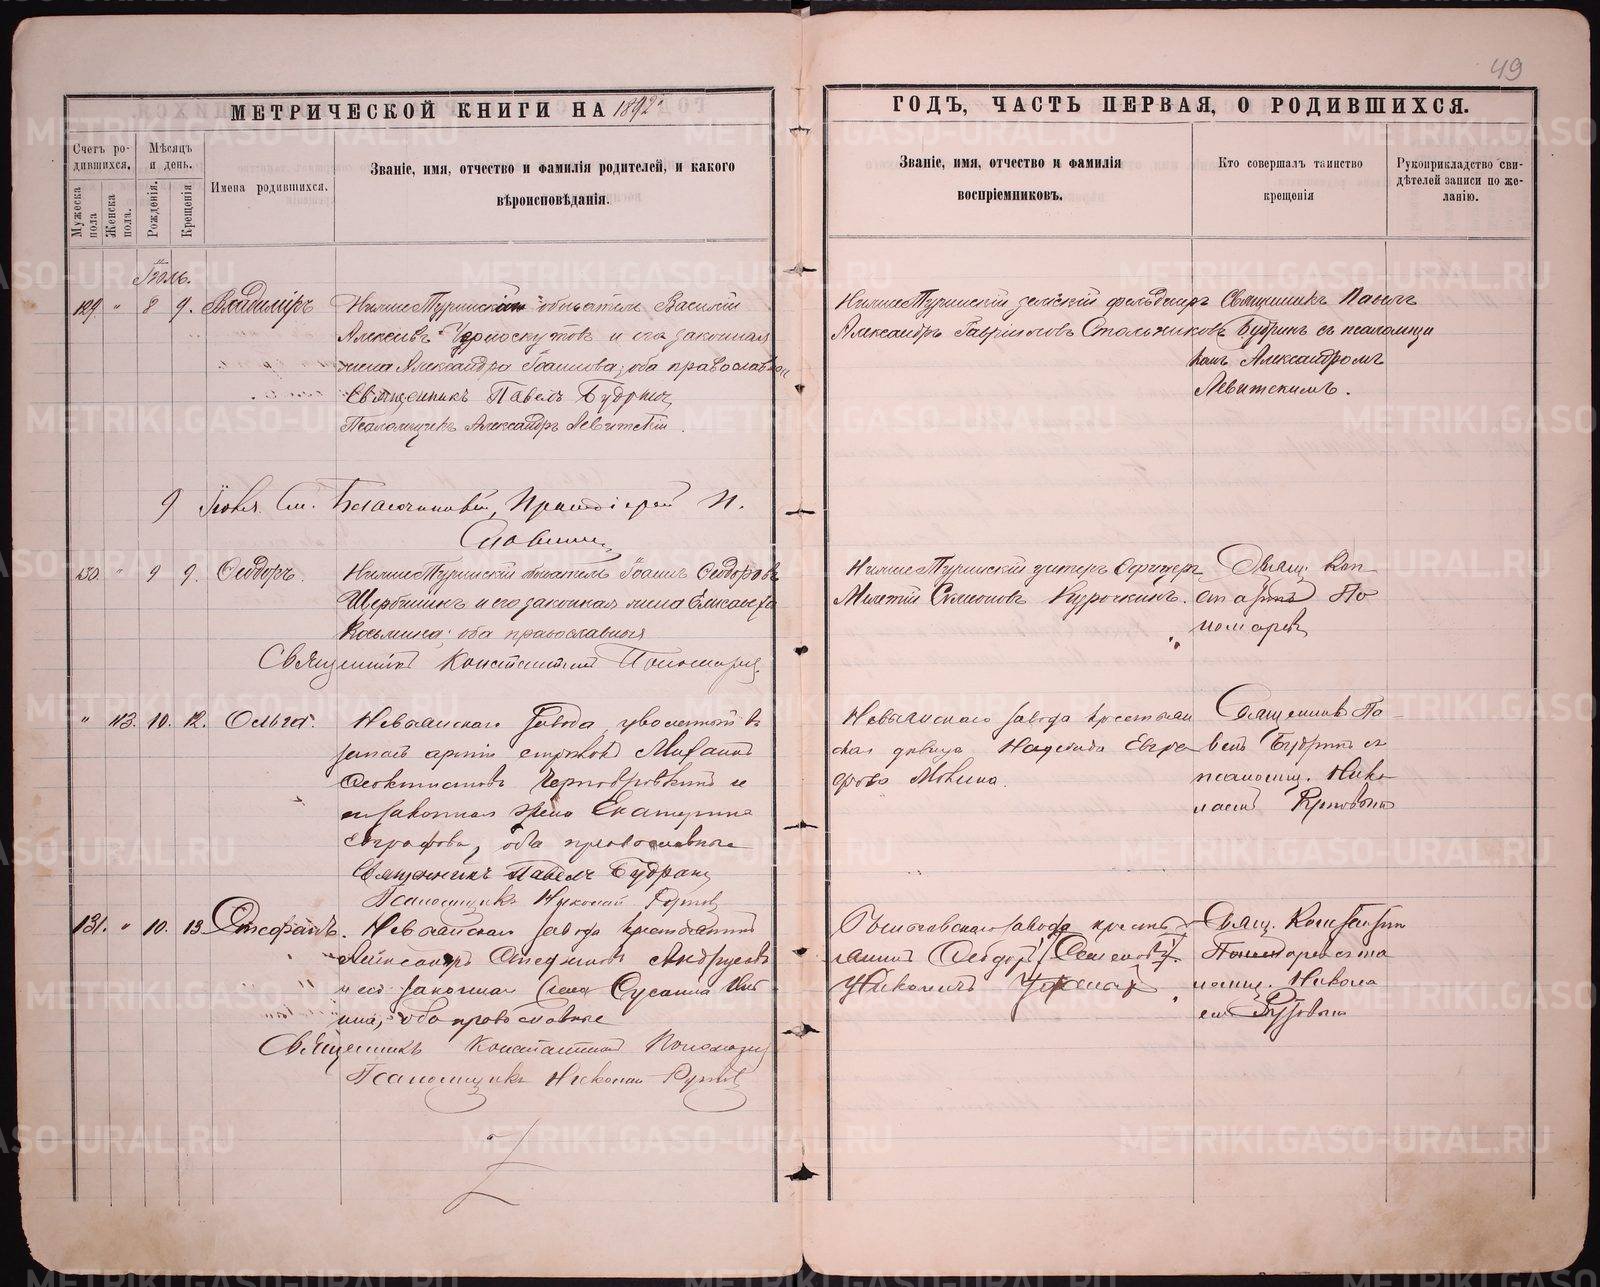 49
МЕТРИЧЕСКОЙ КНИГИ НА 1892
ГОДЪ, ЧАСТЬ ПЕРВАЯ, О РОДИВШИХСЯ.
Счетъ ро-
дившихся.
Мужеска пола
Женска пола.
Мѣсяцъ
и день.
Рожденія.
Крещенія
Имена родившихся.
Званіе, имя, отчество и фамилія родителей, и какого
вѣроисповѣданія.
Званіе, имя, отчество и фамилія
воспріемниковъ.
Кто совершалъ таинство
крещенія
Рукоприкладство сви-
дѣтелей записи по же-
ланію.
Іюль.
129 " 8 9. Владиміръ
НижнеТуринскій обыватель Василій
Алексѣевъ Черноскутовъ и его законная
жена Александра Іоаннова; оба православн
Священникъ Павелъ Будринъ
Псаломщикъ Александръ Левитскій.
НижнеТуринскій земскій фельдшеръ
Александръ Гавріиловъ Стольниковъ
Священникъ Павелъ
Будринъ съ псаломщи
комъ Александромъ
Левитскимъ.
9 Іюля См. Благочинный, Протоіерей П.
130. " 9 9. Ѳеодоръ.
НижнеТуринскій обыватель Іоаннъ Ѳеодоровъ
Щербининъ и его законная жена Елисавета
Косьмина: оба православныя
Священникъ Константинъ Пономаревъ
НижнеТуринскій унтеръ Офицеръ
Мелетій Симеоновъ Курочкинъ.
Свящ. Кон
По
номаревъ
" 113. 10. 12. Ольга.
Невьянскаго завода, уволенный въ
запасъ арміи стрѣлокъ Михаилъ
Ѳеоктистовъ и
его законная жена Екатерина
Евграфова, оба православные
Священникъ Павелъ Будринъ
Псаломщикъ Николай
Невьянскаго завода крестьян
ская дѣвица Надежда Евгра
фова Мокина.
Священникъ Па-
велъ Будринъ съ
псаломщ. Нико
лаемъ
131. " 10. 13. Стефанъ.
Невьянскаго завода крестьянинъ
Александръ Стефановъ Андреевъ
и его законная жена Сусанна
оба православные
Священникъ Константинъ Пономаревъ
Псаломщикъ Николай
завода кресть
янинъ Ѳеодоръ (Семеновъ)
Николаевъ
Свящ. Константинъ
Пономаревъ съ пса
ломщ. Никола
емъ
METRIKI.GASO-URAL.RU